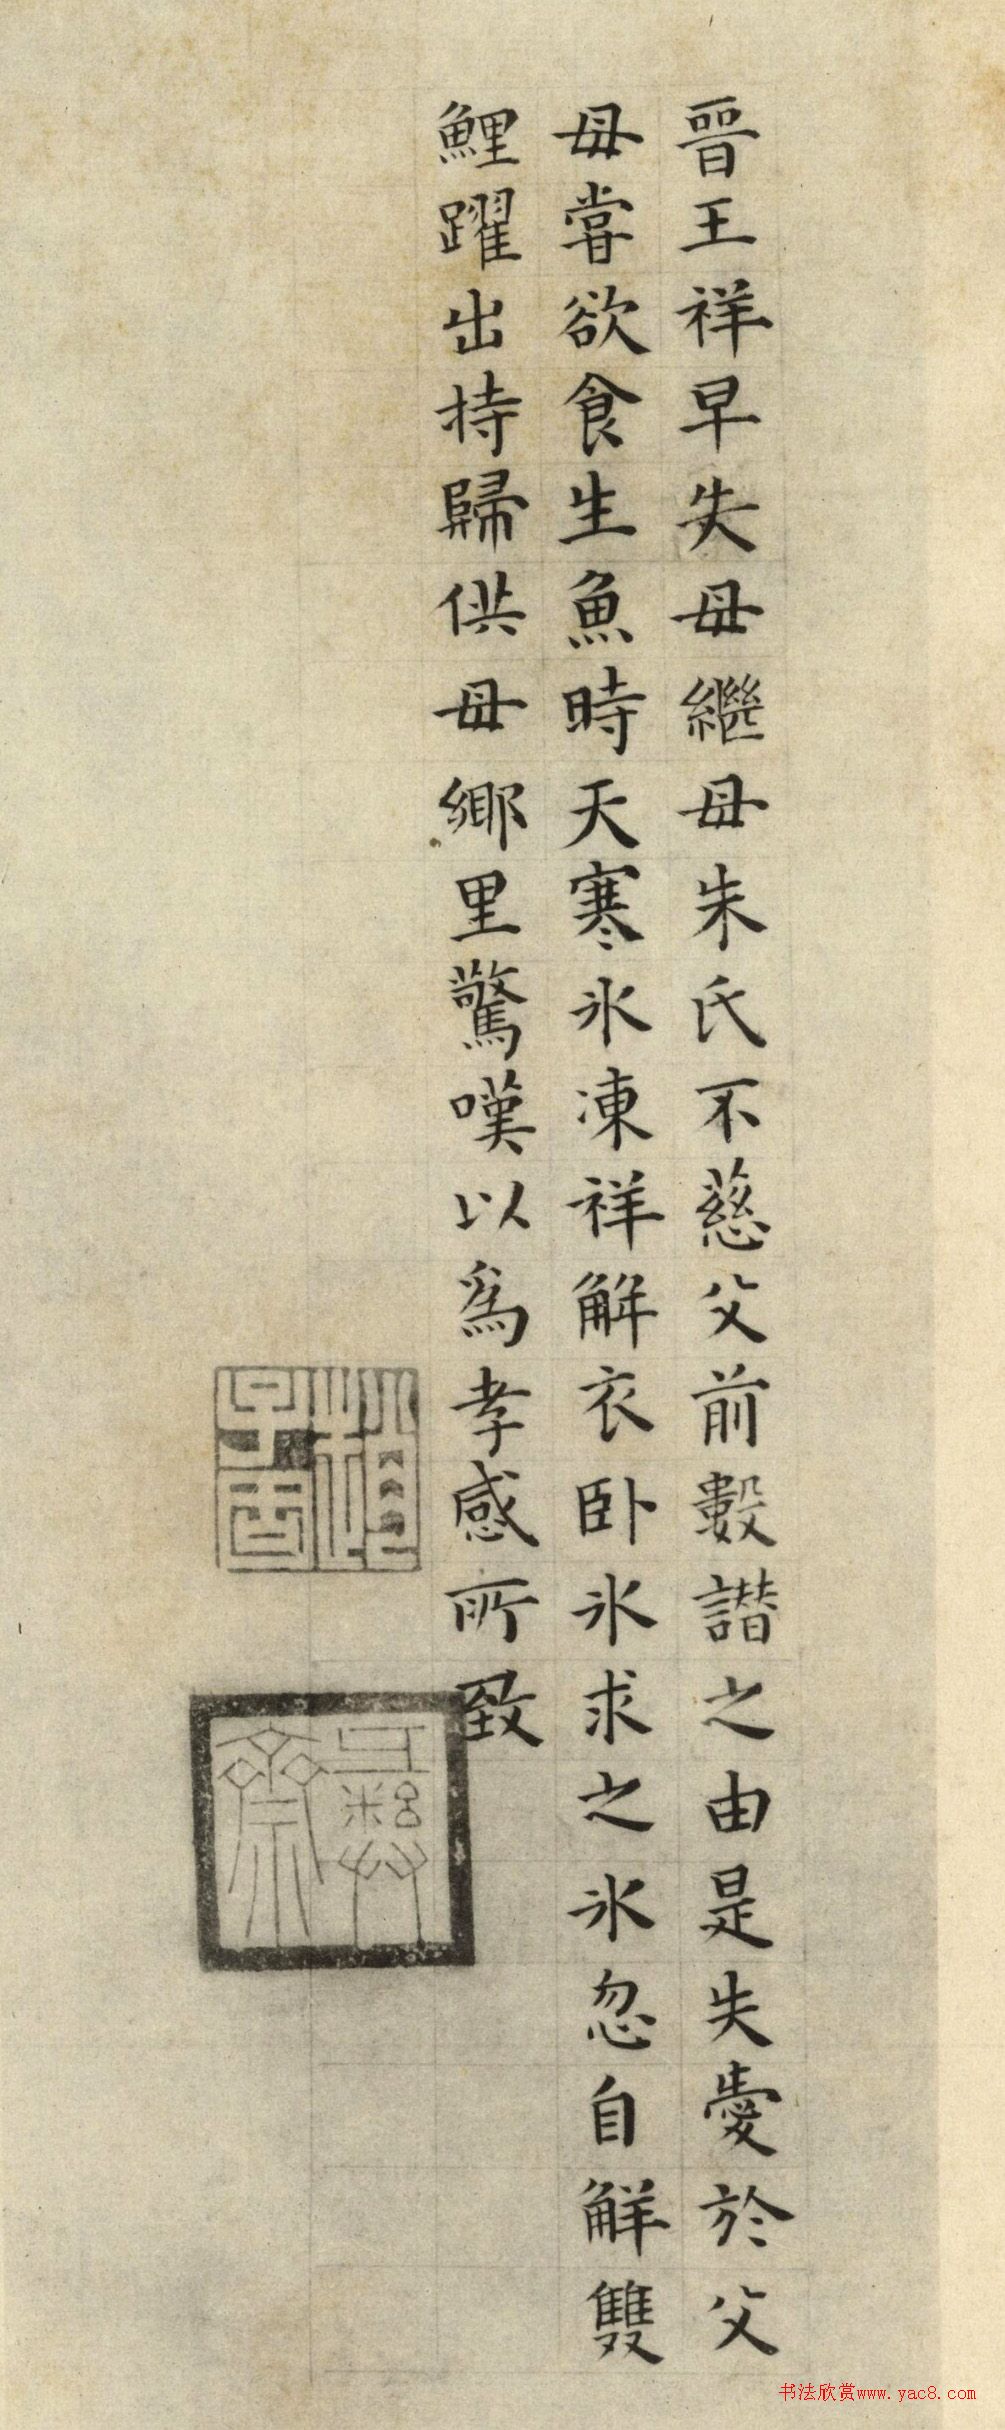 晉王祥早失母繼母朱氏不慈父前數譖之由是失愛於父
母嘗欲食生魚時天寒氷凍祥解衣卧氷求之氷忽自解雙
鯉躍出持歸供母鄉里驚嘆以為孝感所致
书法欣赏www.yac8.com